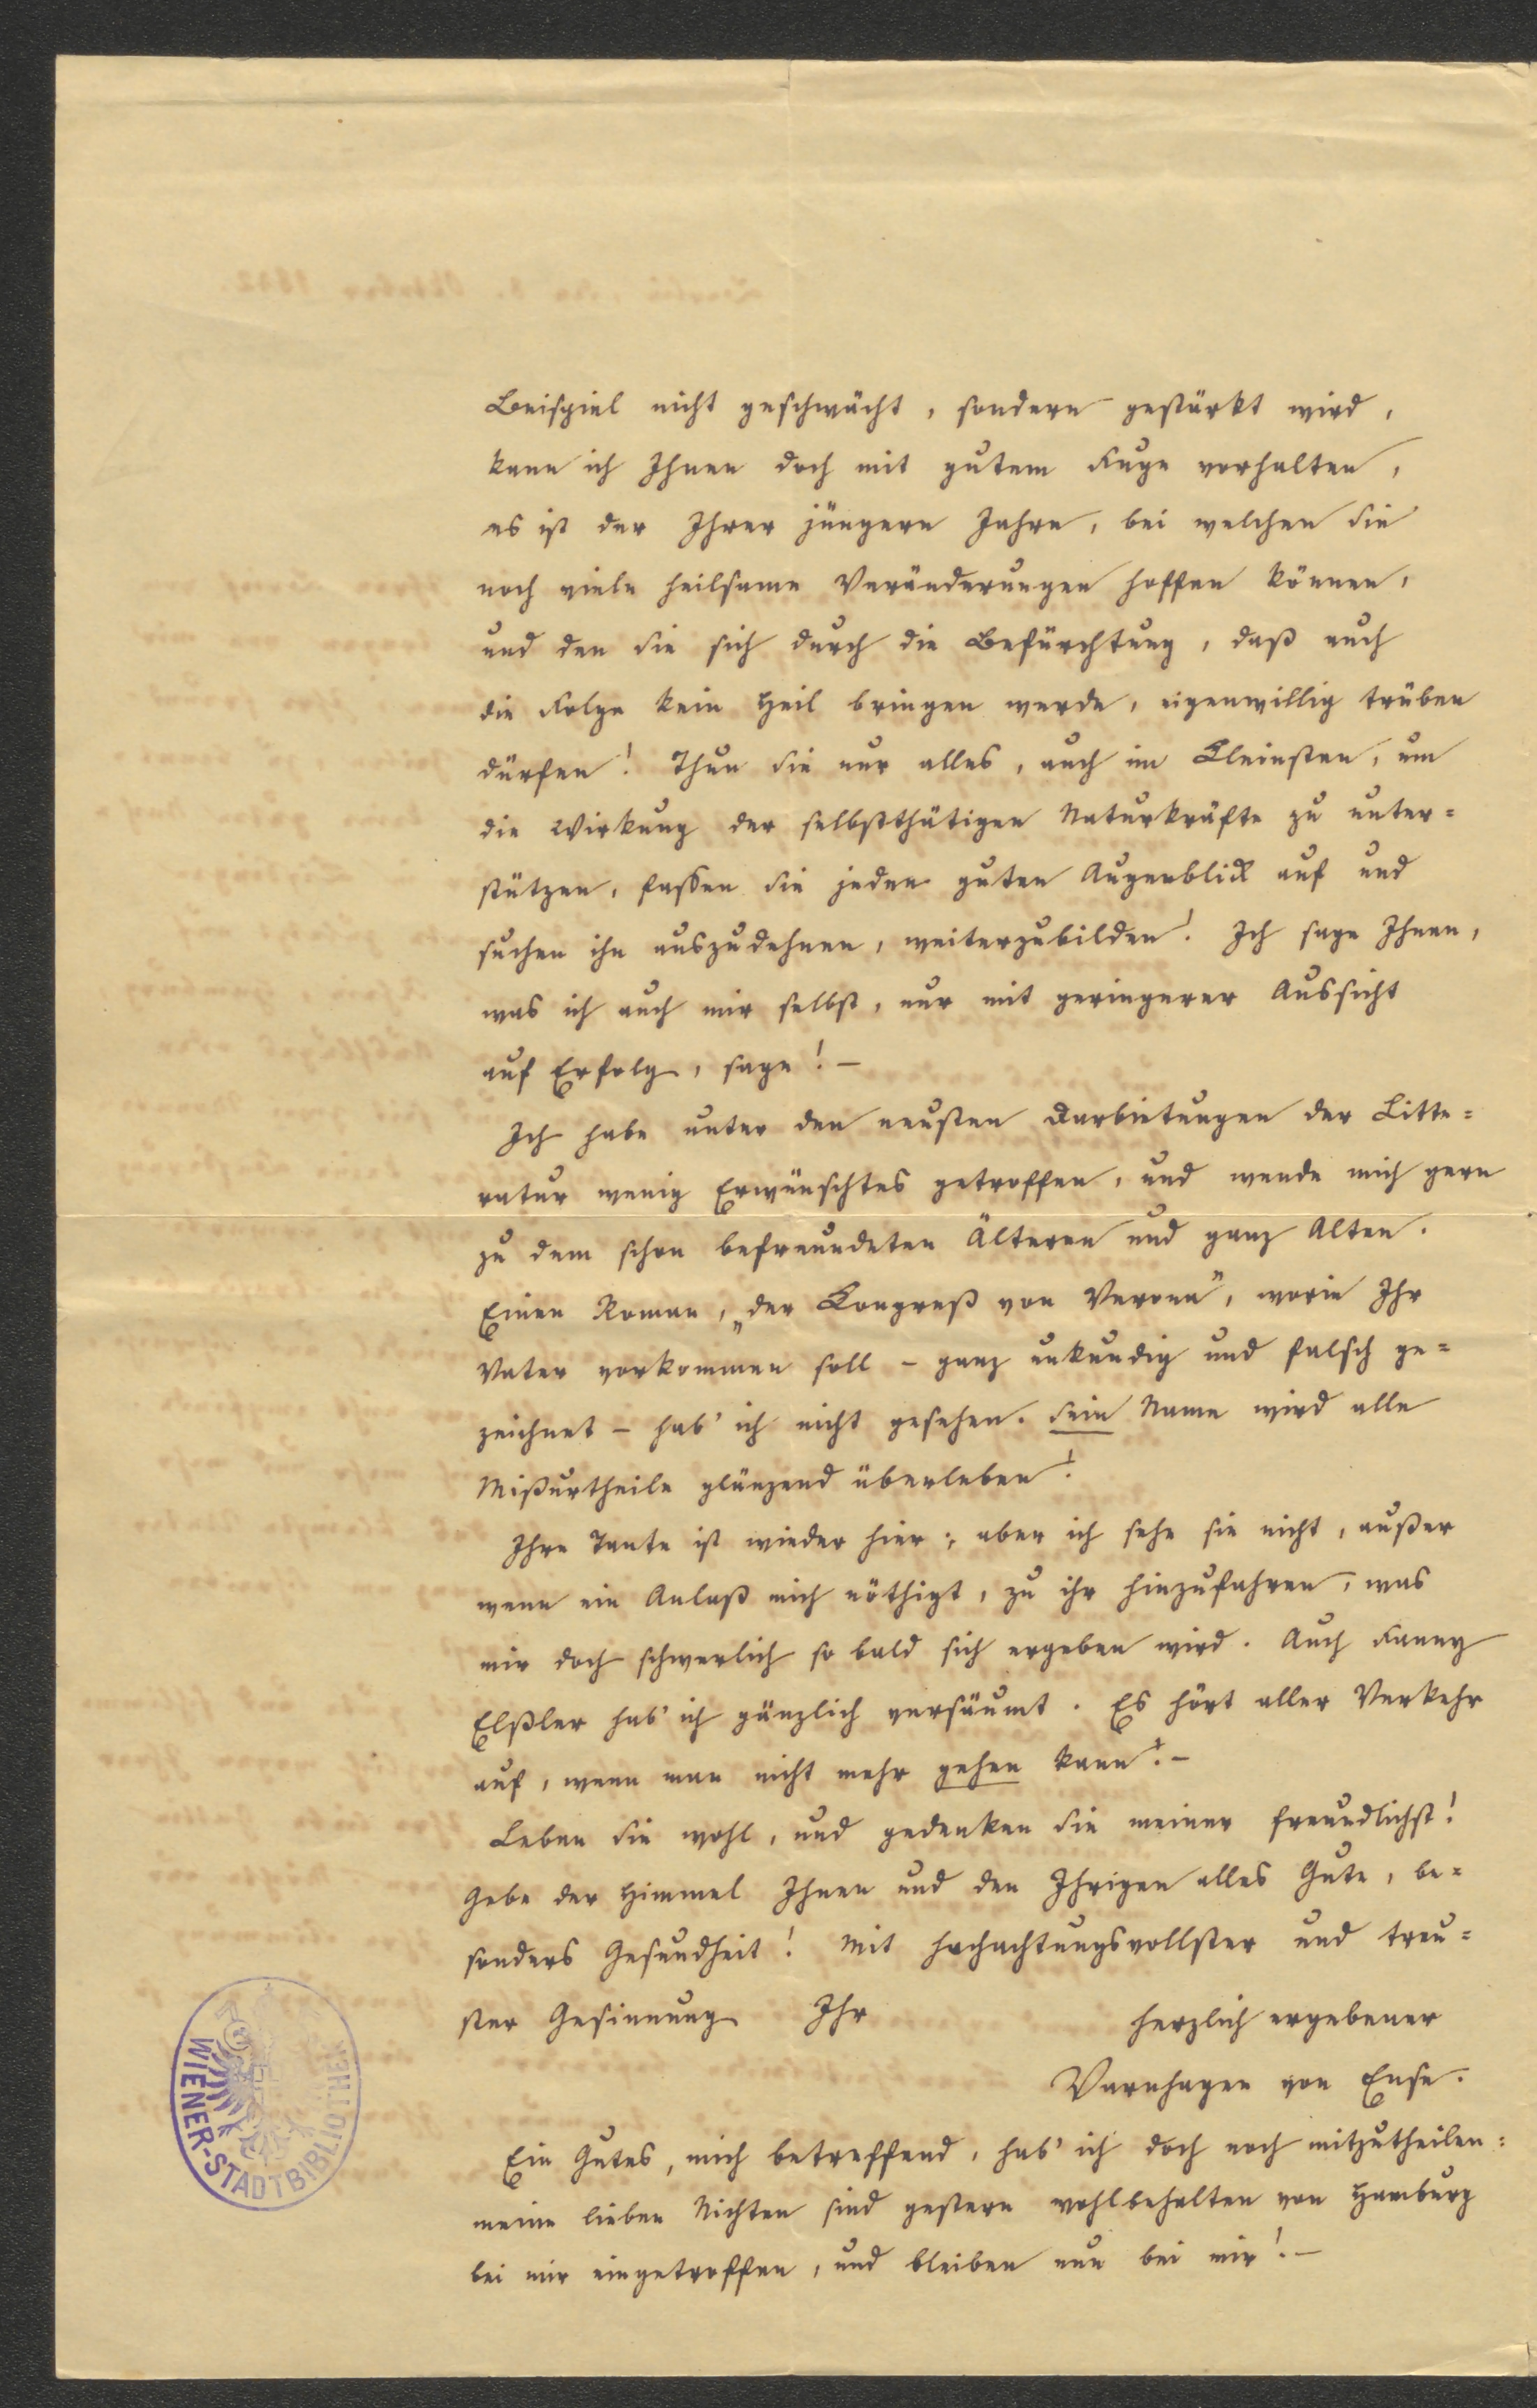 Beispiel nicht geschwächt, sondern gestärkt wird,
kann ich Ihnen doch mit gutem Fuge vorhalten,
es ist der Ihrer jüngern Jahre, bei welchen Sie
noch viele heilsame Veränderungen hoffen können,
und den Sie sich durch die Befürchtung, daß auch
die Folge kein Heil bringen werde, eigenwillig trüben
dürfen! Thun Sie nur alles, auch im Kleinsten, um
die Wirkung der selbstthätigen Naturkräfte zu unter=
stützen, fassen Sie jeden guten Augenblick auf und
suchen ihn auszudehnen, weiterzubilden! Ich sage Ihnen,
was ich auch mir selbst, nur mit geringerer Aussicht
auf Erfolg, sage! –
Ich habe unter den neusten Darbietungen der Litte=
ratur wenig Erwünschtes getroffen, und wende mich gern
zu dem schon befreundeten Älteren und ganz Alten.
Einen Roman, „der Kongreß von Verona", worin Ihr
Vater vorkommen soll – ganz unkundig und falsch ge=
zeichnet – hab' ich nicht gesehen. Sein Name wird alle
Mißurtheile glänzend überleben!
Ihre Tante ist wieder hier; aber ich sehe sie nicht, außer
wenn ein Anlaß mich nöthigt, zu ihr hinzufahren, was
mir doch schwerlich so bald sich ergeben wird. Auch Fanny
Elßler hab' ich gänzlich versäumt. Es hört aller Verkehr
auf, wenn man nicht mehr gehen kann! –
Leben Sie wohl, und gedenken Sie meiner freundlichst!
Gebe der Himmel Ihnen und den Ihrigen alles Gute, be=
sonders Gesundheit! Mit hochachtungsvollster und treu=
ster Gesinnung Ihr herzlich ergebener
Varnhagen von Ense.
Ein Gutes, mich betreffend, hab' ich doch noch mitzutheilen:
meine lieben Nichten sind gestern wohlbehalten von Hamburg
bei mir eingetroffen, und bleiben nun bei mir! –
WIENER-STADTBIBLIOTHEK